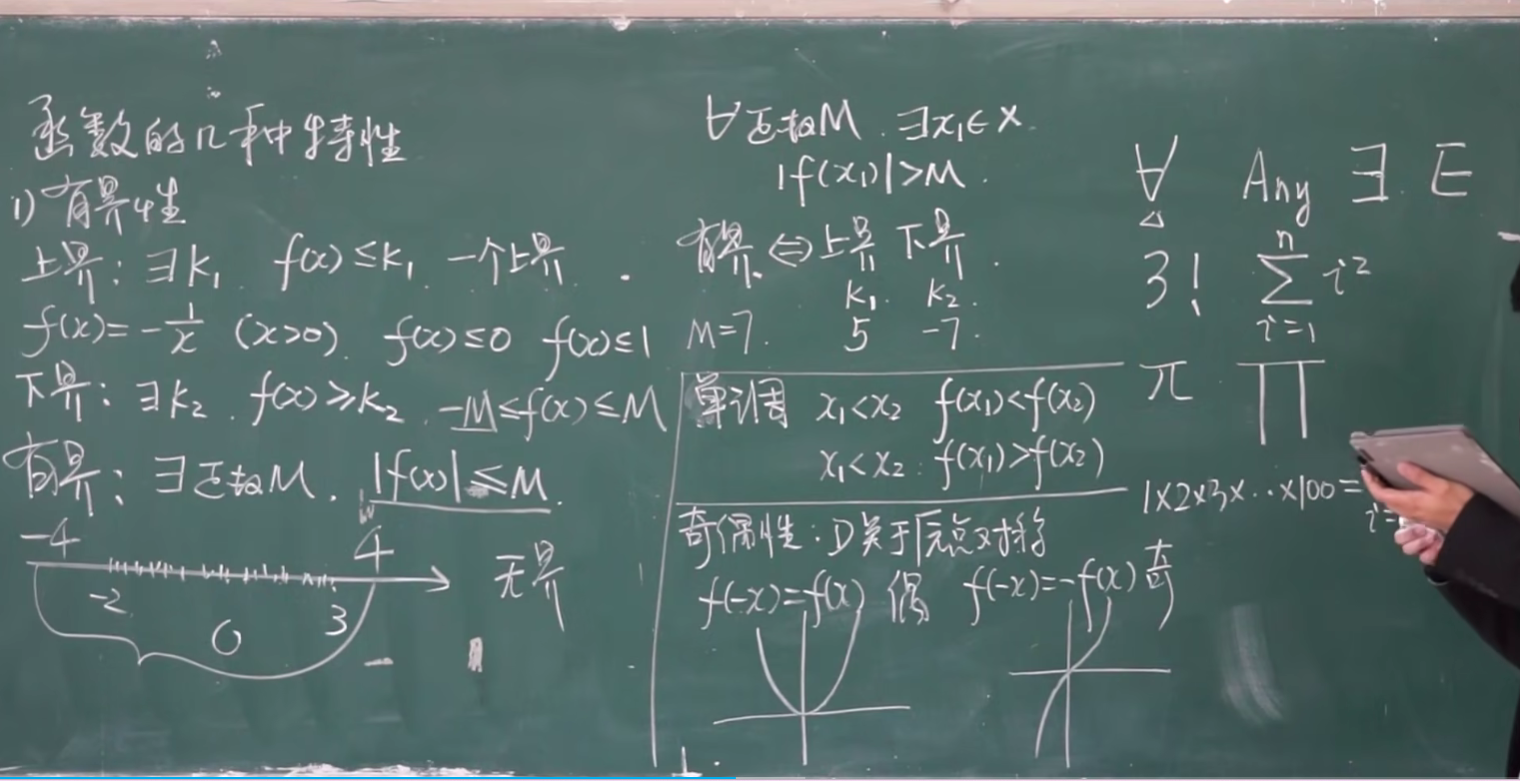 函数的几种特性
1) 有界性
上界: ∃k₁ f(x)≤k₁ 一个上界.
f(x)=-1/x (x>0) f(x)≤0 f(x)≤1
下界: ∃k₂. f(x)≥k₂ -M≤f(x)≤M
有界: ∃正数M. |f(x)|≤M.
-4 4
-2 0 3
无界
∀正数M. ∃x₁∈X.
|f(x₁)|>M.
有界 ⇔ 上界 下界.
k₁. k₂.
M=7. 5 -7.
单调 x₁<x₂ f(x₁)<f(x₂)
x₁<x₂ f(x₁)>f(x₂)
奇偶性: D关于原点对称
f(-x)=f(x) 偶 f(-x)=-f(x) 奇
∀ Any ∃. E
3! ∑ n i=1 i²
π ∏
1×2×3×··×100=
i=